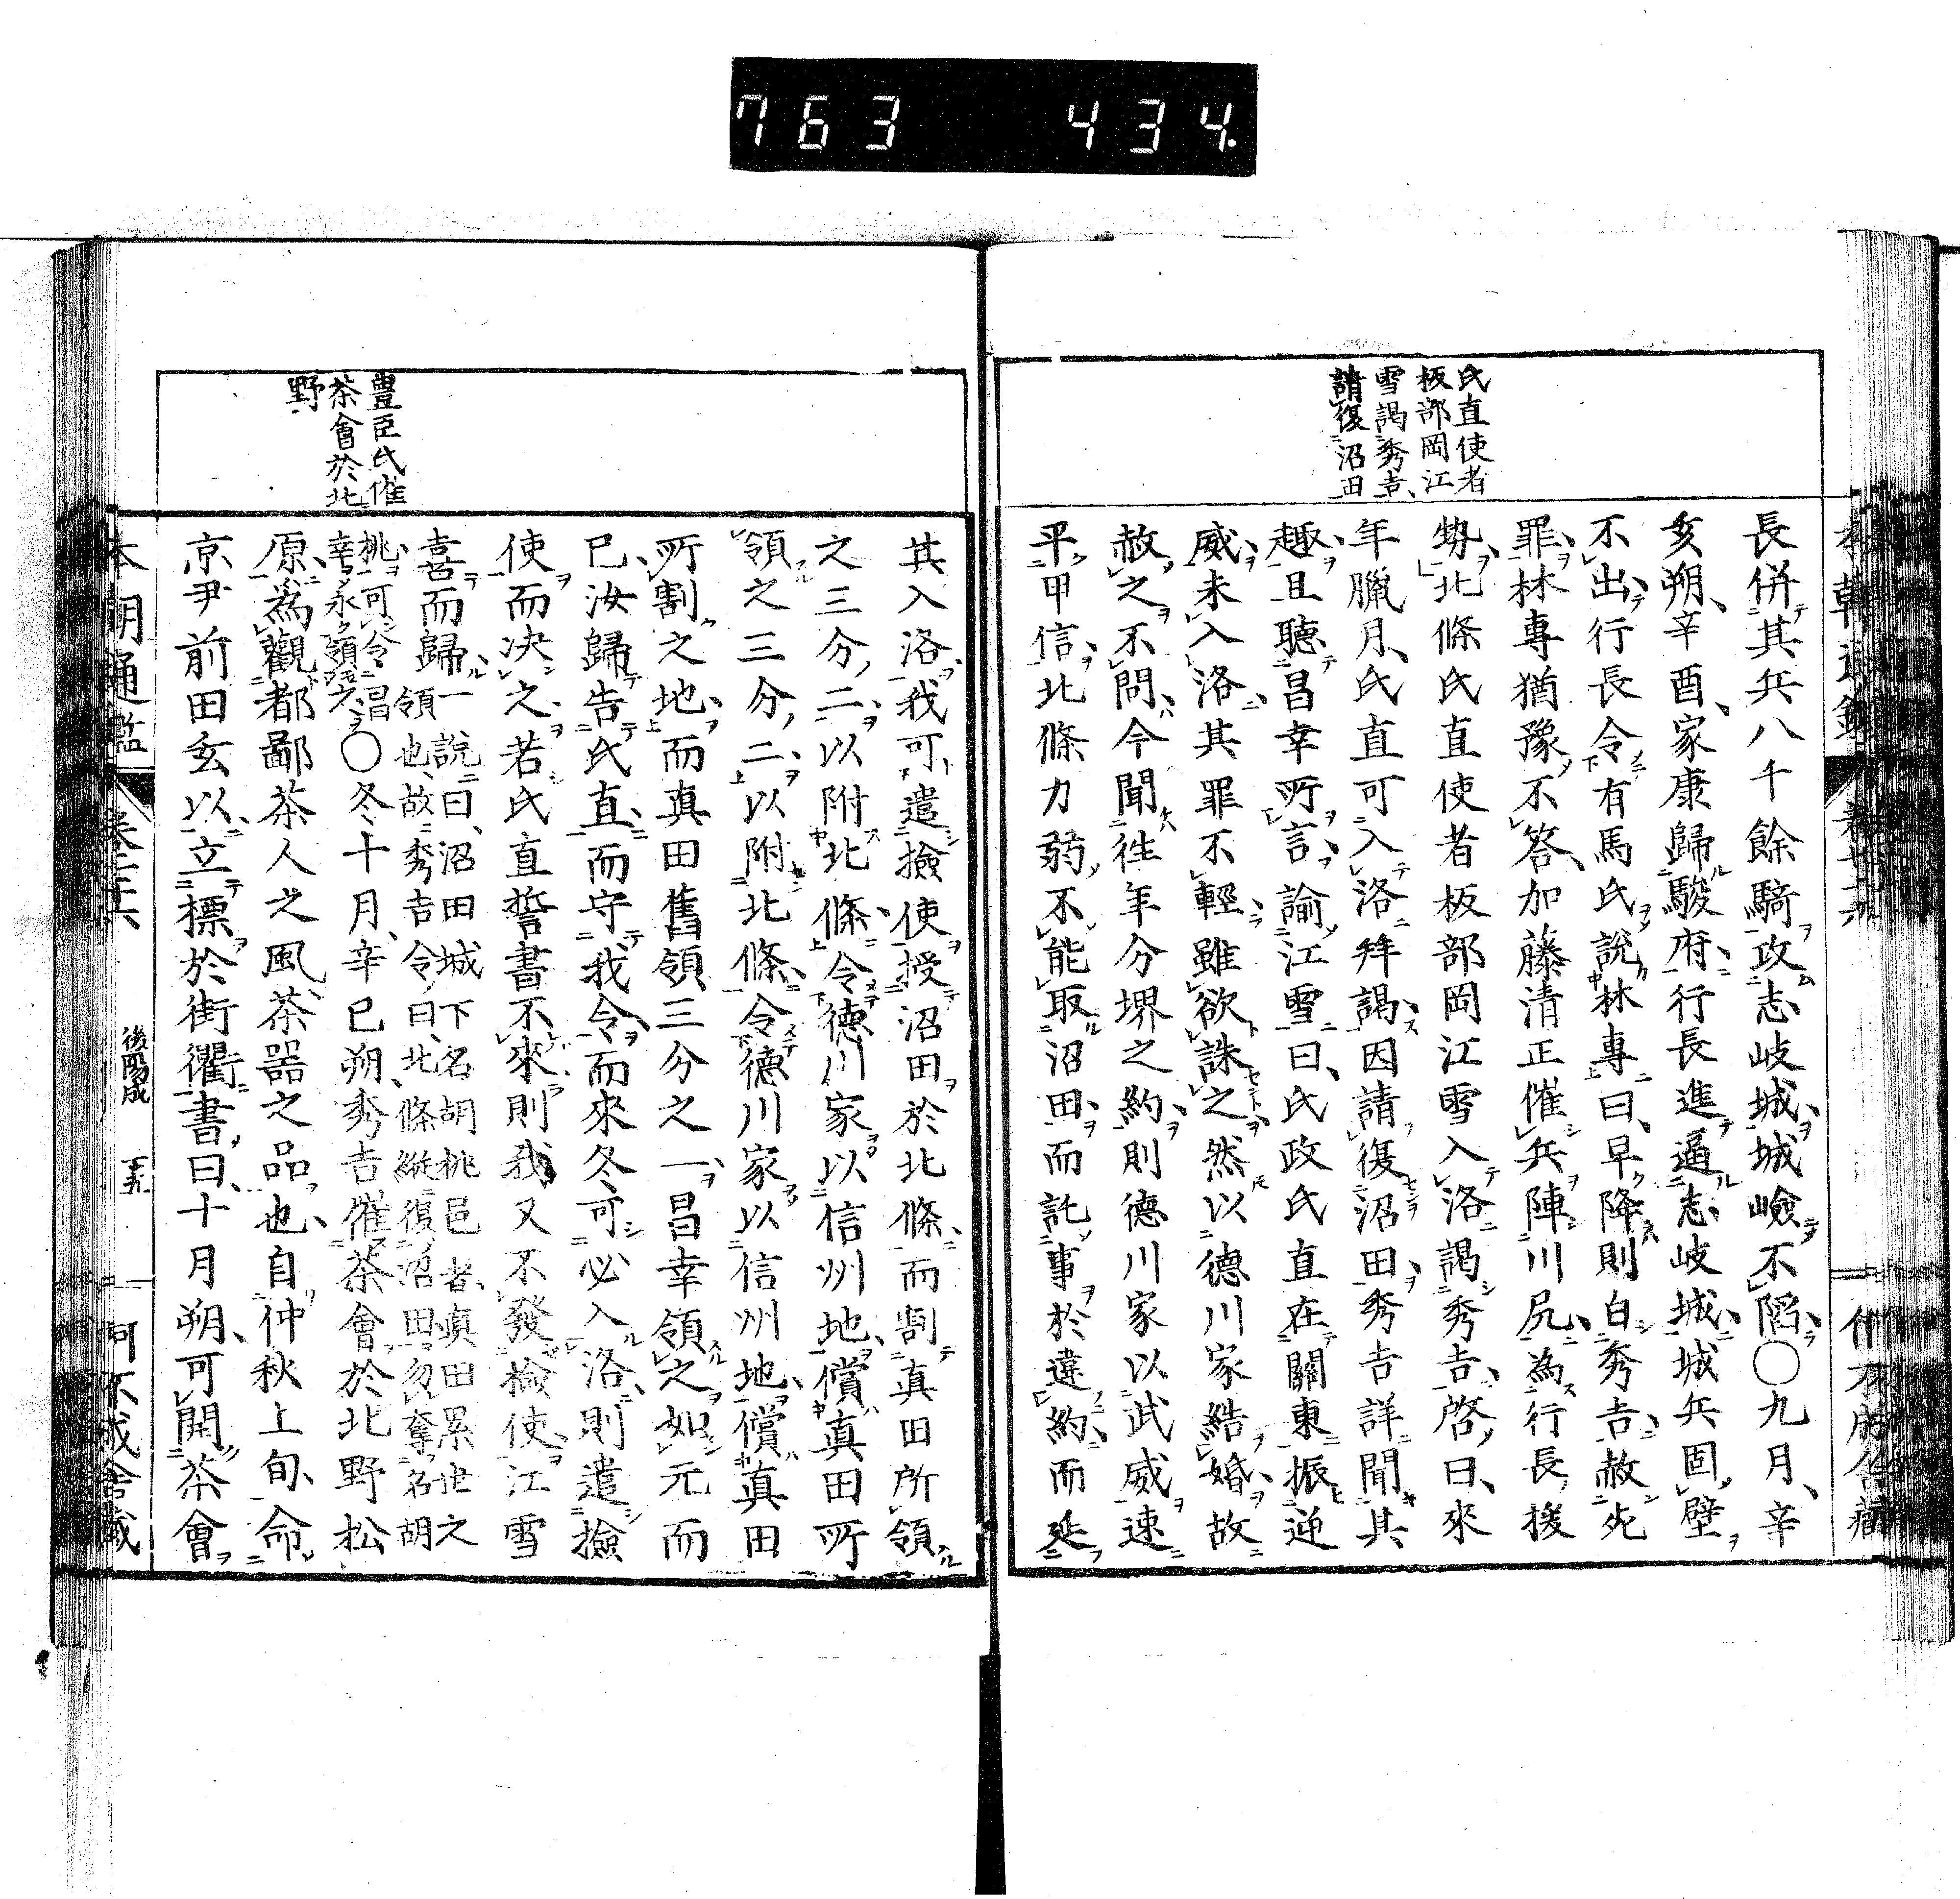 763 434.
氏直使者
板部岡江
雪謁秀吉
請復沼田
長併其兵八千餘騎攻志岐城城嶮不陷〇九月辛
亥朔辛酉家康歸駿府行長進逼志岐城城兵固壁
不出行長令有馬氏說林專曰早降則白秀吉赦死
罪林專猶豫不答加藤清正催兵陣川尻為行長援
勢北條氏直使者板部岡江雪入洛謁秀吉啓曰來
年臘月氏直可入洛拜謁因請復沼田秀吉詳聞其
趣且聽昌幸所言諭江雪曰氏政氏直在關東振逆
威未入洛其罪不輕雖欲誅之然以德川家結婚故
赦之不問今聞往年分堺之約則德川家以武威速
平甲信北條力弱不能取沼田而託事於違約而延
豊臣氏催
茶會於北
野
其入洛我可遣撿使授沼田於北條而割真田所領
之三分二以附北條令德川家以信州地償真田所
領之三分二以附北條令德川家以信州地償真田
所割之地而真田舊領三分之一昌幸領之如元而
已汝歸告氏直而守我令而來冬可必入洛則遣撿
使而决之若氏直誓書不來則我又不發撿使江雪
喜而歸一說曰沼田城下名胡桃邑者真田累世之
領也故秀吉令曰北條縱復沼田勿奪名胡
桃可令昌
幸永領之〇冬十月辛巳朔秀吉催茶會於北野松
原為觀都鄙茶人之風茶器之品也自仲秋上旬命
京尹前田玄以立標於街衢書曰十月朔可開茶會
本朝通鑑 卷 後陽成 十五